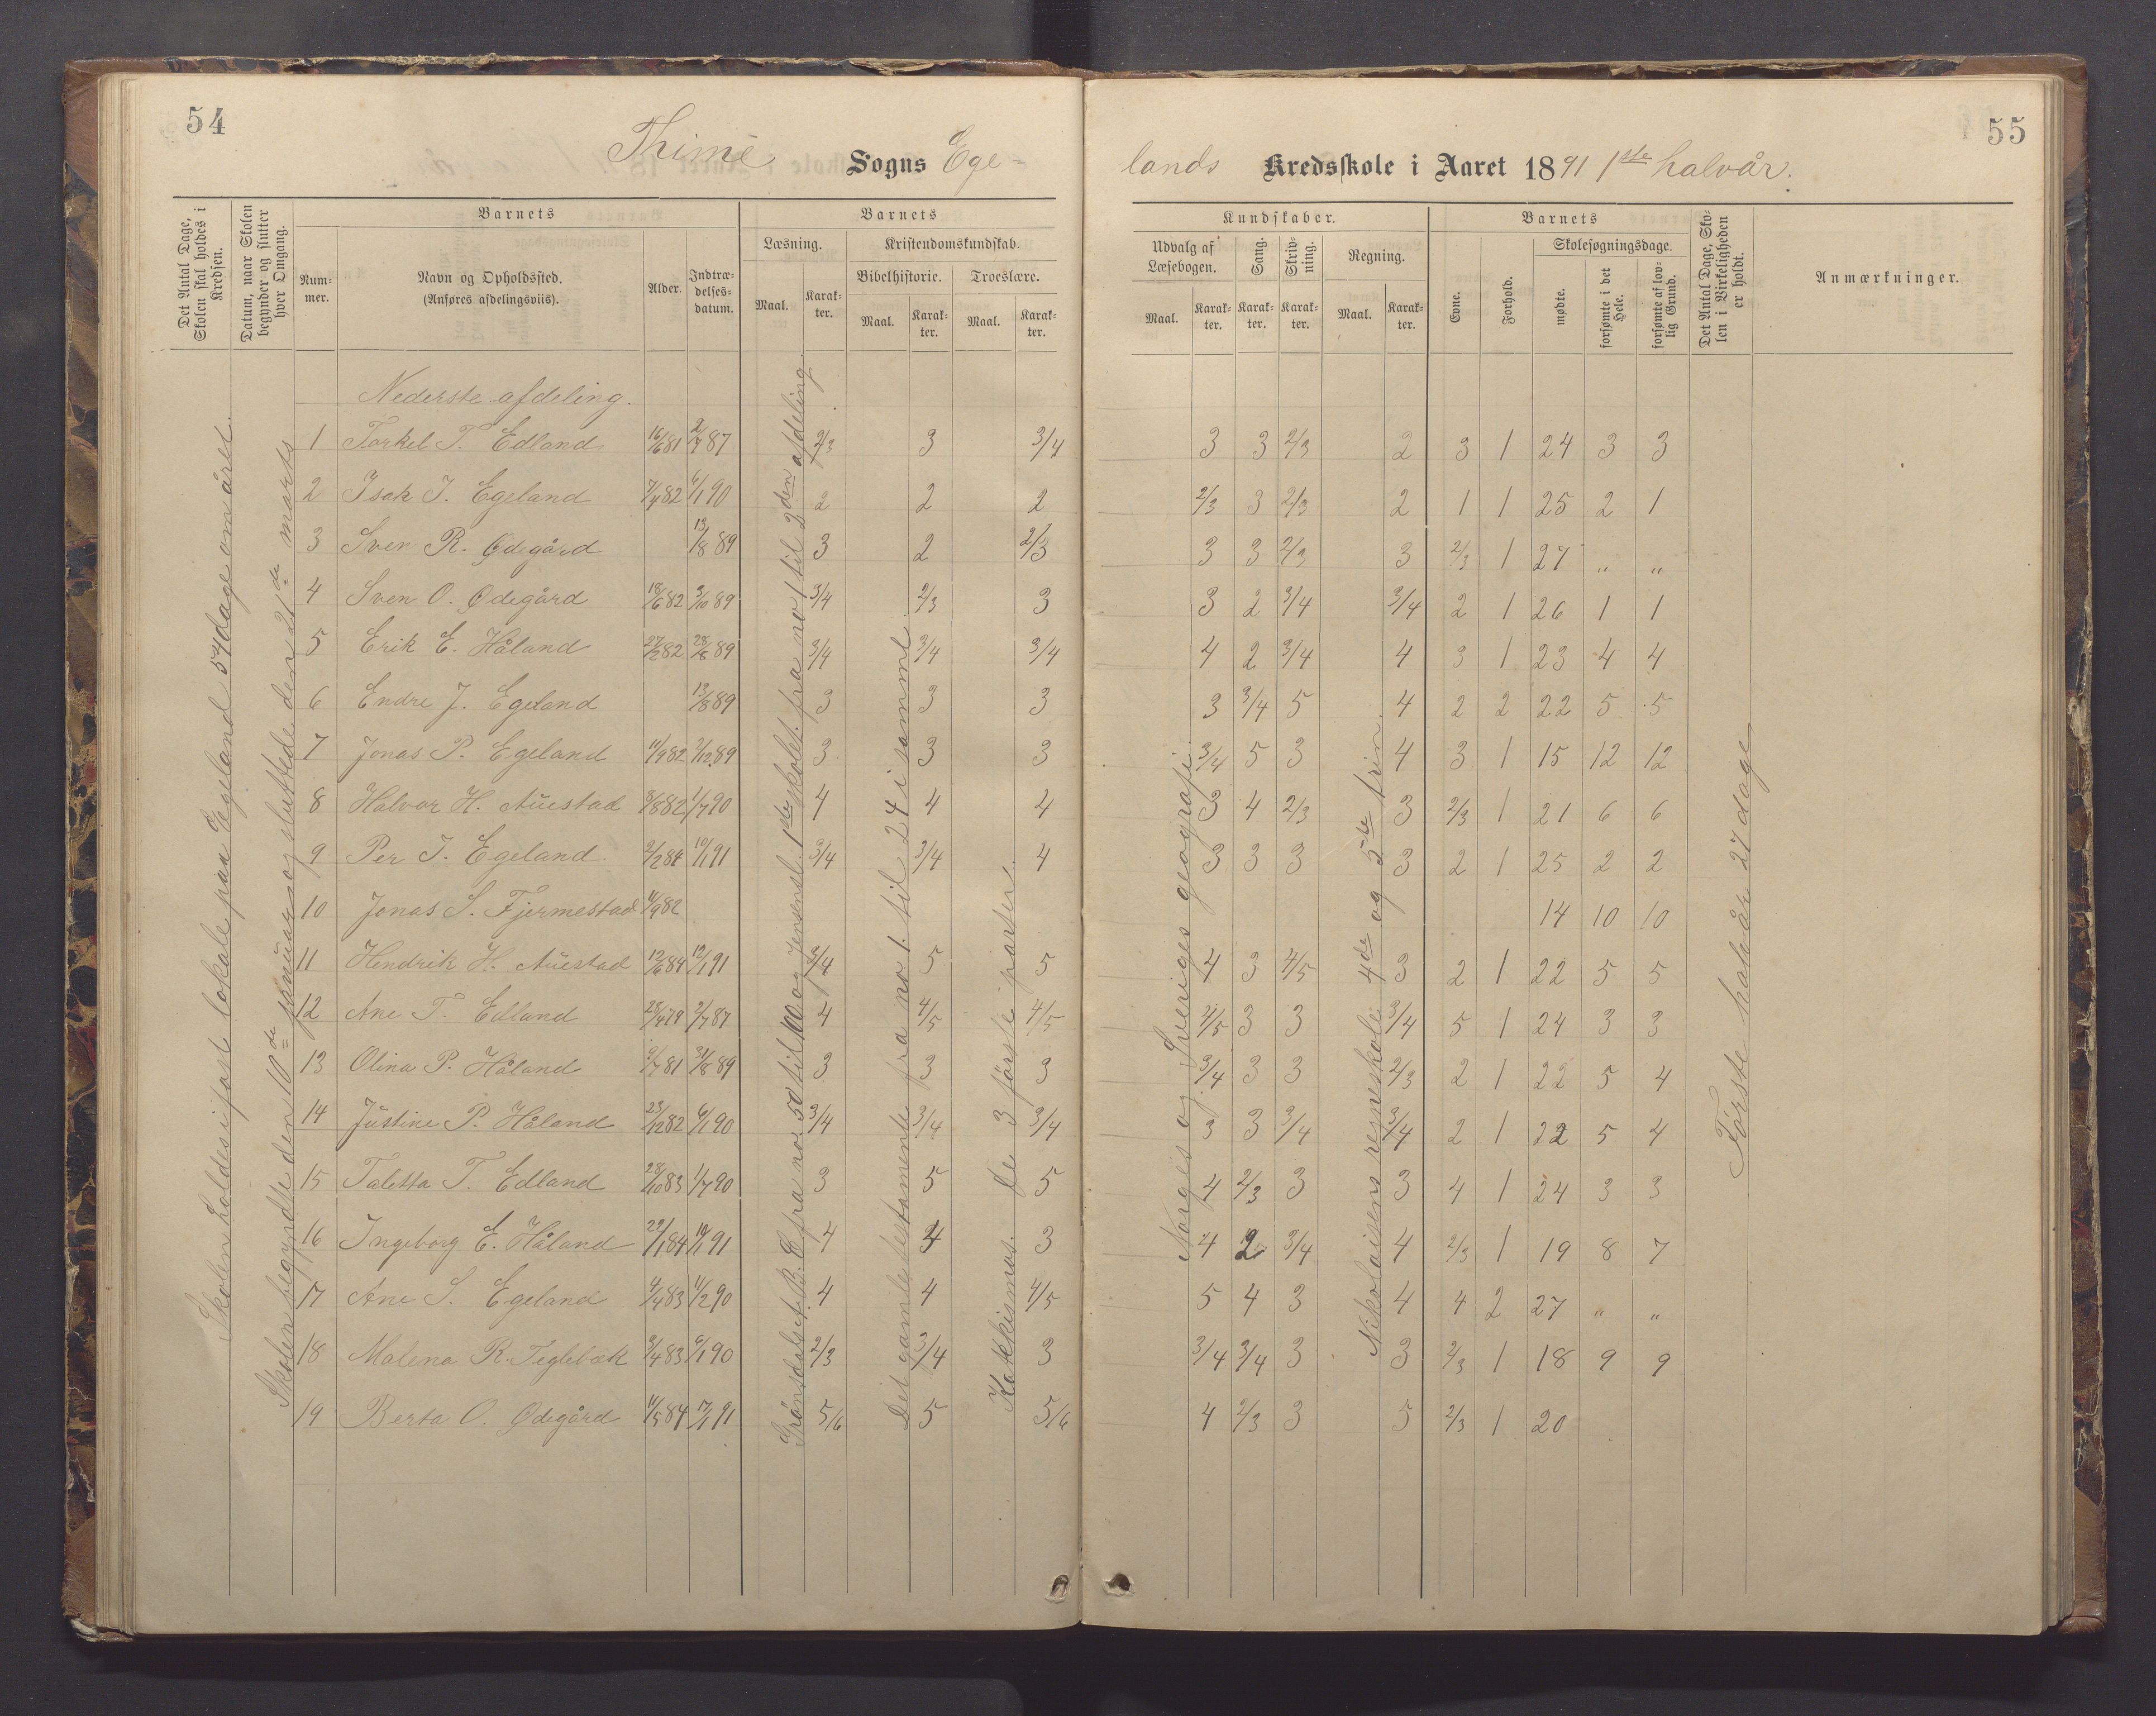 54
55
Thime Sogns Ege-
lands Kredsskole i Aaret 1891 1ste halvår.
Det Antal Dage, Skolen skal holdes i Kredsen.
Datum, naar Skolen begynder og slutter hver Omgang.
Barnets
Num-
mer.
Navn og Opholdssted.
(Anføres afdelingsviis).
Alder.
Indtræ-
delses-
datum.
Barnets
Læsning.
Maal.
Karak-
ter.
Kristendomskundskab.
Bibelhistorie.
Troeslære.
Maal.
Karak-
ter.
Maal.
Karak-
ter.
Kundskaber.
Udvalg af
Læsebogen.
Maal.
Karak-
ter.
Sang.
Karak-
ter.
Skriv-
ning.
Karak-
ter.
Regning.
Maal.
Karak-
ter.
Barnets
Evne.
Forhold.
Skolesøgningsdage.
mødte.
forsømte i det Hele.
forsømte af lov-
lig Grund.
Det Antal Dage, Sko-
len i Virkeligheden
er holdt.
Anmærkninger.
Skolen holdes i fast lokale paa Egeland 54 dage om året.
Skolen begyndte den 10de januar og sluttede den 21de marts
Nederste afdeling.
1 Torkel T. Edland 16/6 81 2/7 87 2/3 3 3/4 3 3 2/3 2 3 1 24 3 3
2 Isak J. Egeland 7/4 82 6/1 90 2 2 2 2/3 3 2/3 2 1 1 25 2 1
3 Sven R. Ødegård 13/8 89 3 2 2/3 3 3 2/3 3 2/3 1 27 " "
4 Sven O. Ødegård 18/6 82 3/10 89 3/4 2/3 3 3 2 3/4 3/4 2 1 26 1 1
5 Erik E. Håland 27/2 82 28/8 89 3/4 3/4 3/4 4 2 3/4 4 3 1 23 4 4
6 Endre J. Egeland 13/8 89 3 3 3 3 3/4 5 4 2 2 22 5 5
7 Jonas P. Egeland 11/9 82 2/12 89 3 3 3 3/4 5 3 4 3 1 15 12 12
8 Halvor H. Auestad 8/8 82 1/7 90 4 4 4 3 4 2/3 3 2/3 1 21 6 6
9 Per J. Egeland 2/2 84 10/1 91 3/4 3/4 4 3 3 3 3 2 1 25 2 2
10 Jonas S. Fjermestad 11/9 82 14 10 10
11 Hendrik H. Auestad 12/6 84 12/1 91 3/4 5 5 4 3 4/5 3 2 1 22 5 5
12 Ane T. Edland 28/4 79 2/7 87 4 4/5 4/5 4/5 3 3 3/4 5 1 24 3 3
13 Olina P. Håland 9/7 81 31/8 89 3 3 3 3/4 3 3 2/3 2 1 22 5 4
14 Justine P. Håland 23/12 82 6/1 90 3/4 3/4 3/4 3 3 3/4 3/4 2 1 22 5 4
15 Taletta T. Edland 28/10 83 1/7 90 3 5 5 4 2/3 3 3 4 1 24 3 3
16 Ingeborg E. Håland 29/1 84 10/1 91 4 4 3 4 2 3/4 4 2/3 1 19 8 7
17 Ane S. Egeland 4/4 83 11/2 90 4 4 4/5 5 4 3 4 4 2 27 " "
18 Malena R. Teglebæk 3/4 83 6/1 90 2/3 3/4 3 3/4 3/4 3 3 2/3 1 18 9 9
19 Berta O. Ødegård 11/5 84 17/1 91 5/6 5 5/6 4 2/3 3 5 2/3 1 20
Grönsdalset A.B.C fra no 50 til 100 og Jensens l. 1ste skolet. fra no 1 til 2den afdeling.
Det gamle testamente fra no 1. til 24 i samml.
Katekismus. de 3 förste parter.
Norges og Sveriges geografi.
Nikolaisens regneskole 4de og 5te trin.
Förste halvår 27 dage